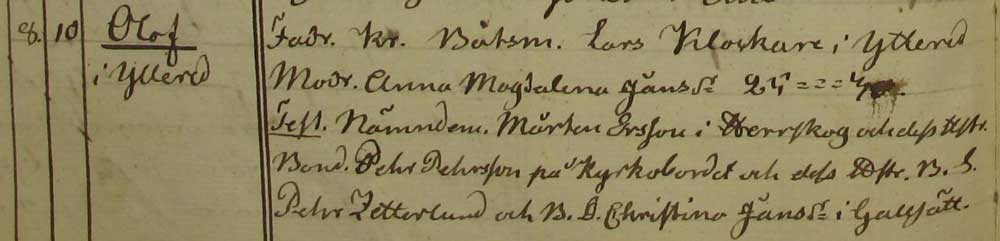 8. 10 Olof Fadr. Kr. Båtsm. Lars Kloskare i Yttered
i Yttered Modr. Anna Magdalena Jänsdr 25 = = = 40.
Test. Nämndem. Mårten Ersson i Herrskog och dess Hstr.
Bond. Pehr Pehrsson på Kyrkobordet och dess Hstr. B. S.
Pehr Zetterlund och B. D. Christina Jänsdr i Gallsätt.